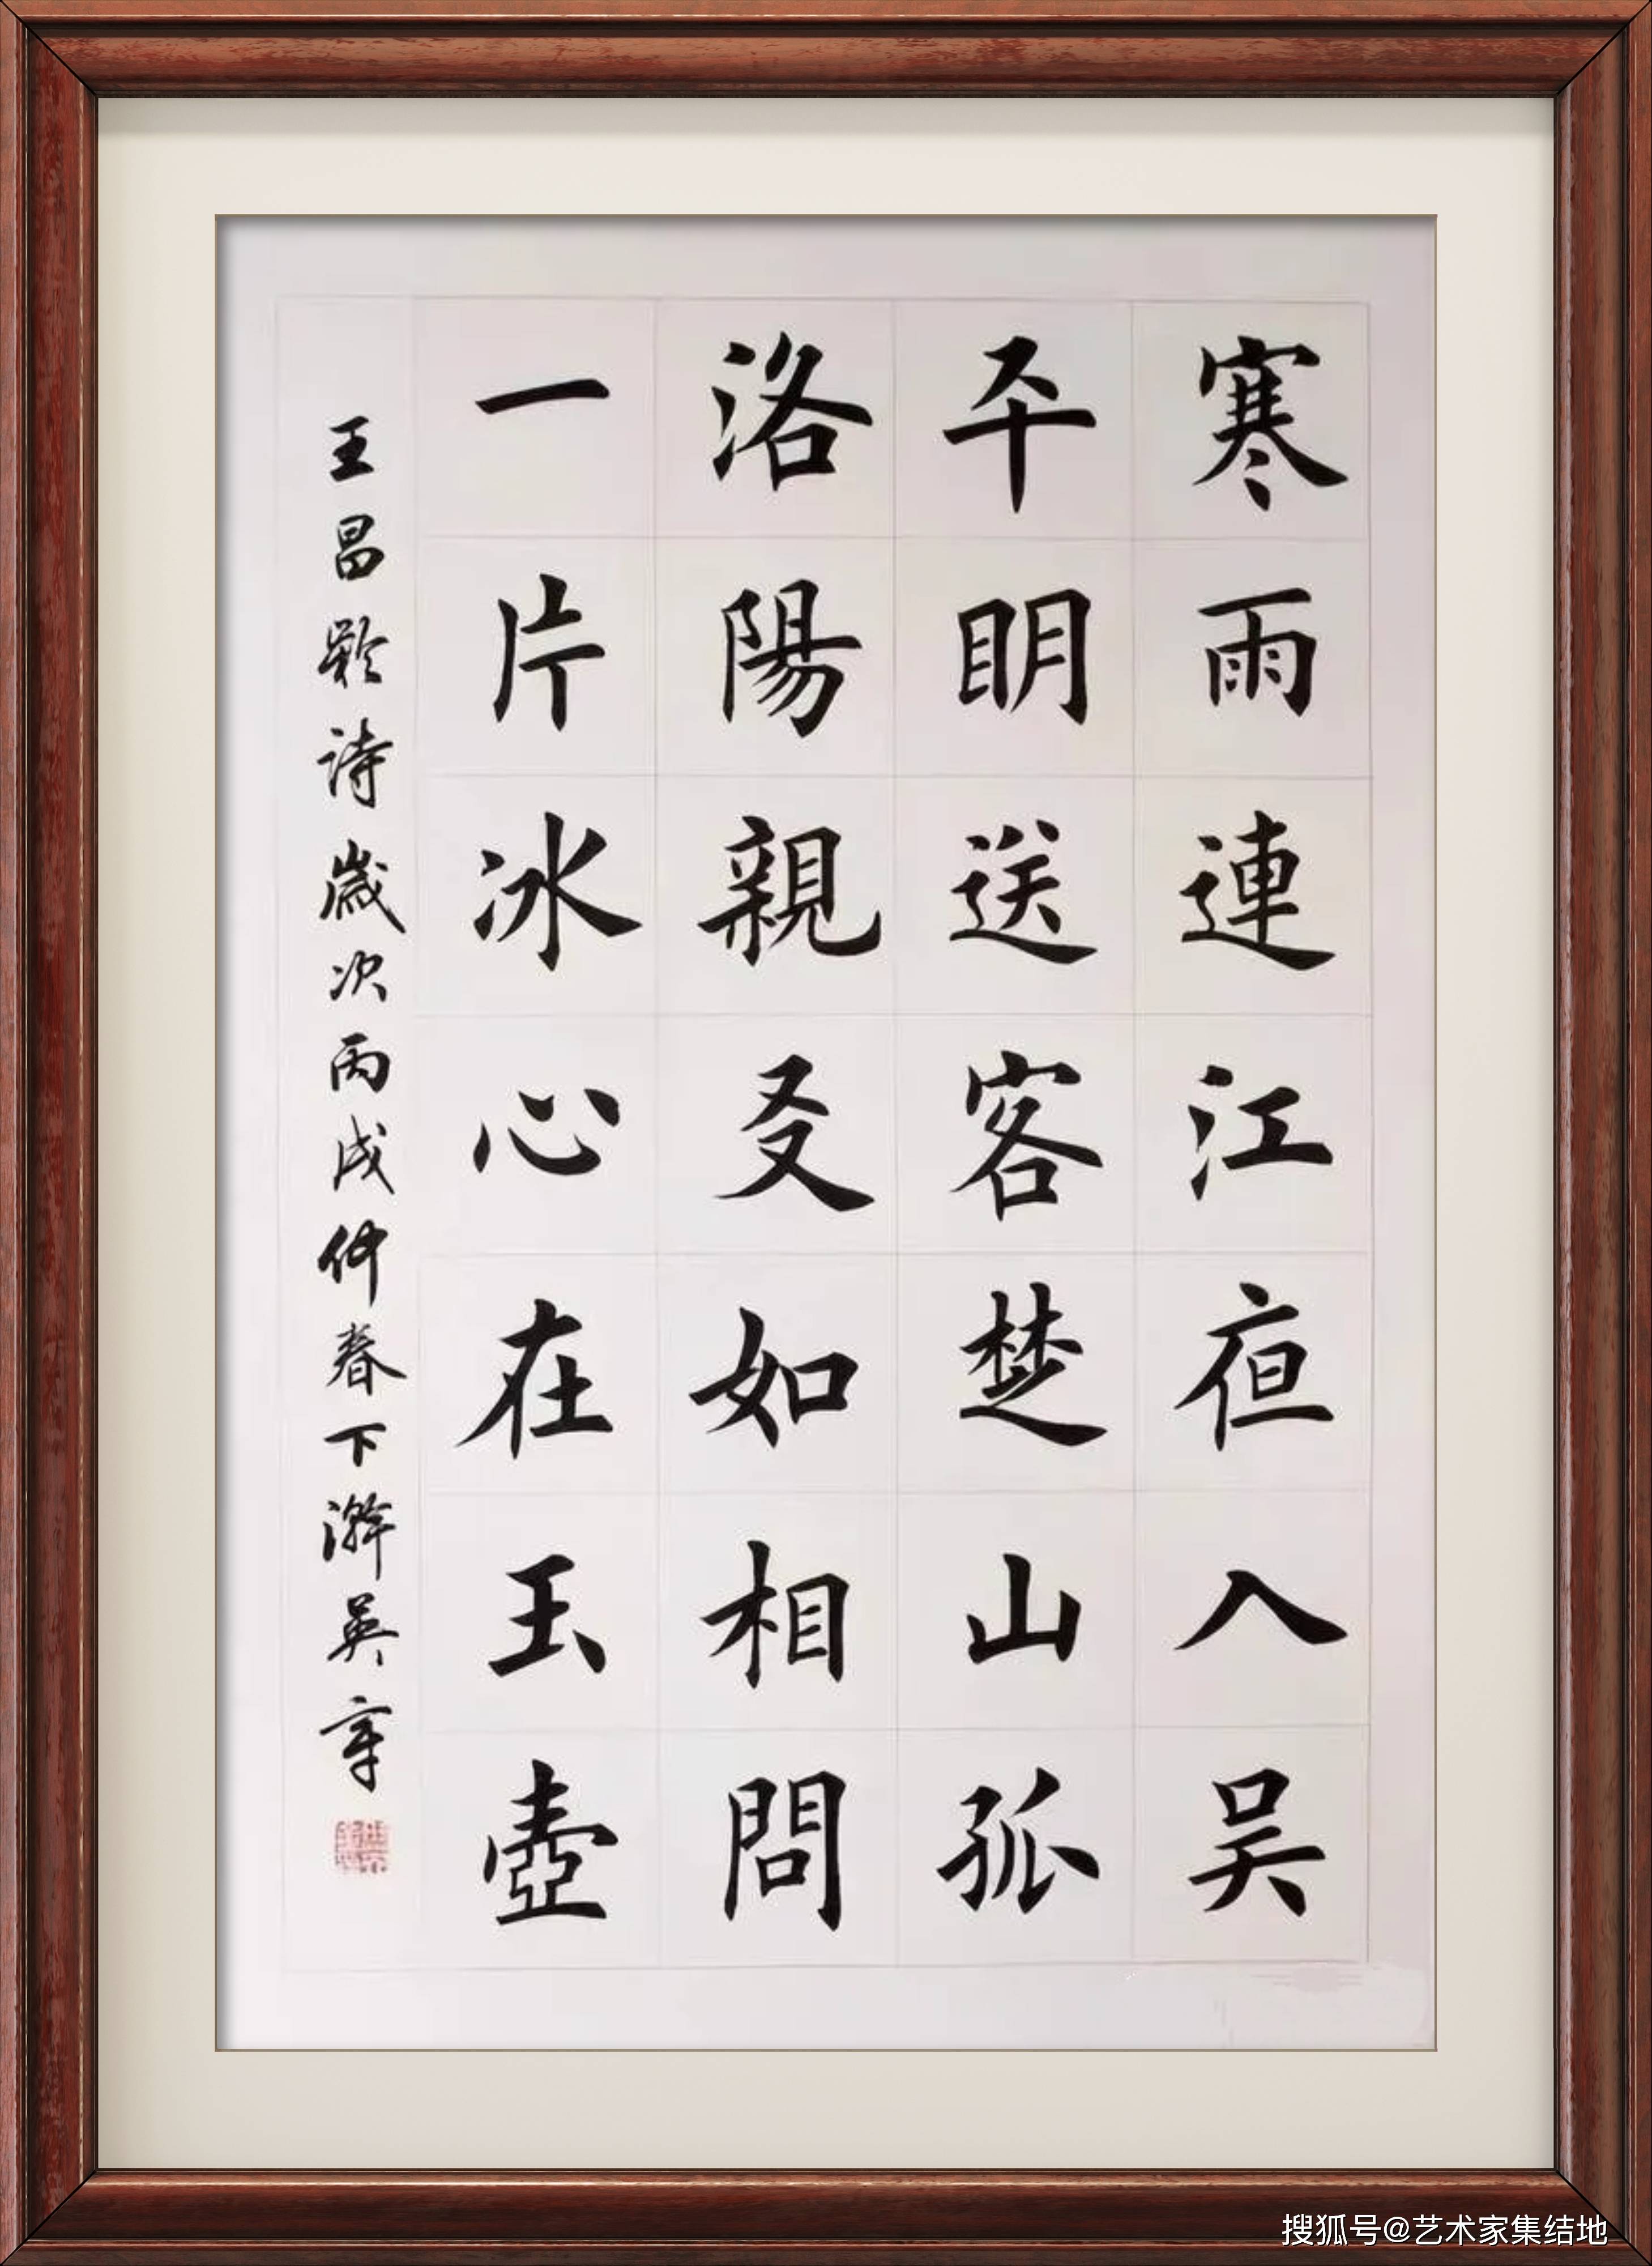 寒雨連江夜入吴
平明送客楚山孤
洛陽親友如相問
一片冰心在玉壺
王昌齡詩歲次丙戌仲春下澣英章
搜狐号@艺术家集结地